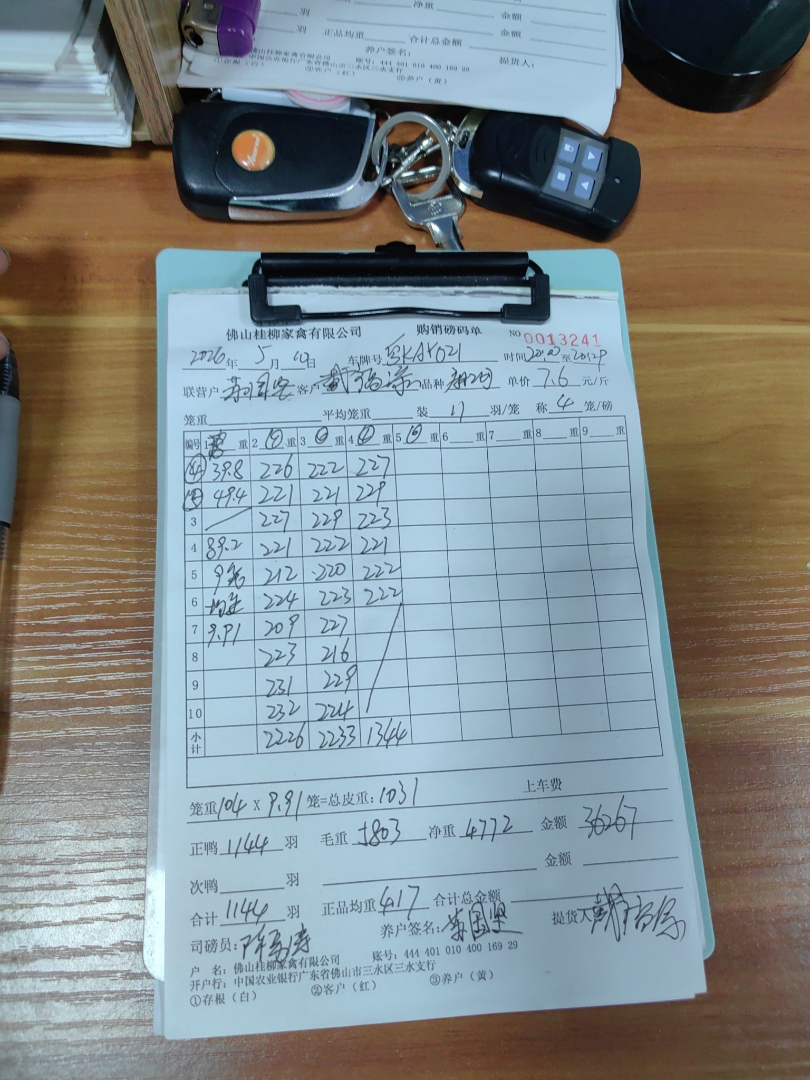 羽 净重 金额
羽 正品均重 合计总金额 金额
养户签名: 提货人:
佛山桂柳家禽有限公司 账号: 444 401 010 400 169 29
中国农业银行广东省佛山市三水区三水支行
①存根(白) ②客户(红) ③养户(黄)
佛山桂柳家禽有限公司 购销磅码单 NO 0013241
2026年5月10日 车牌号 时间 至
联营户 客户 品种 单价 7.6 元/斤
笼重 平均笼重 装 11 羽/笼 称 4 笼/磅
编号 1 重 2 重 3 重 4 重 5 重 6 重 7 重 8 重 9 重
39.8 226 222 227
49.4 221 221 229
3 227 229 223
4 89.2 221 222 221
5 9笼 212 220 222
6 224 223 222
7 9.91 209 227
8 223 216
9 231 229
10 232 224
小计 2226 2233 1344
笼重 104 X 9.91 笼=总皮重: 1031 上车费
正鸭 1144 羽 毛重 5803 净重 4772 金额 36267
次鸭 羽 金额
合计 1144 羽 正品均重 417 合计总金额
司磅员: 养户签名: 提货人
户 名: 佛山桂柳家禽有限公司 账号: 444 401 010 400 169 29
开户行: 中国农业银行广东省佛山市三水区三水支行
①存根(白) ②客户(红) ③养户(黄)